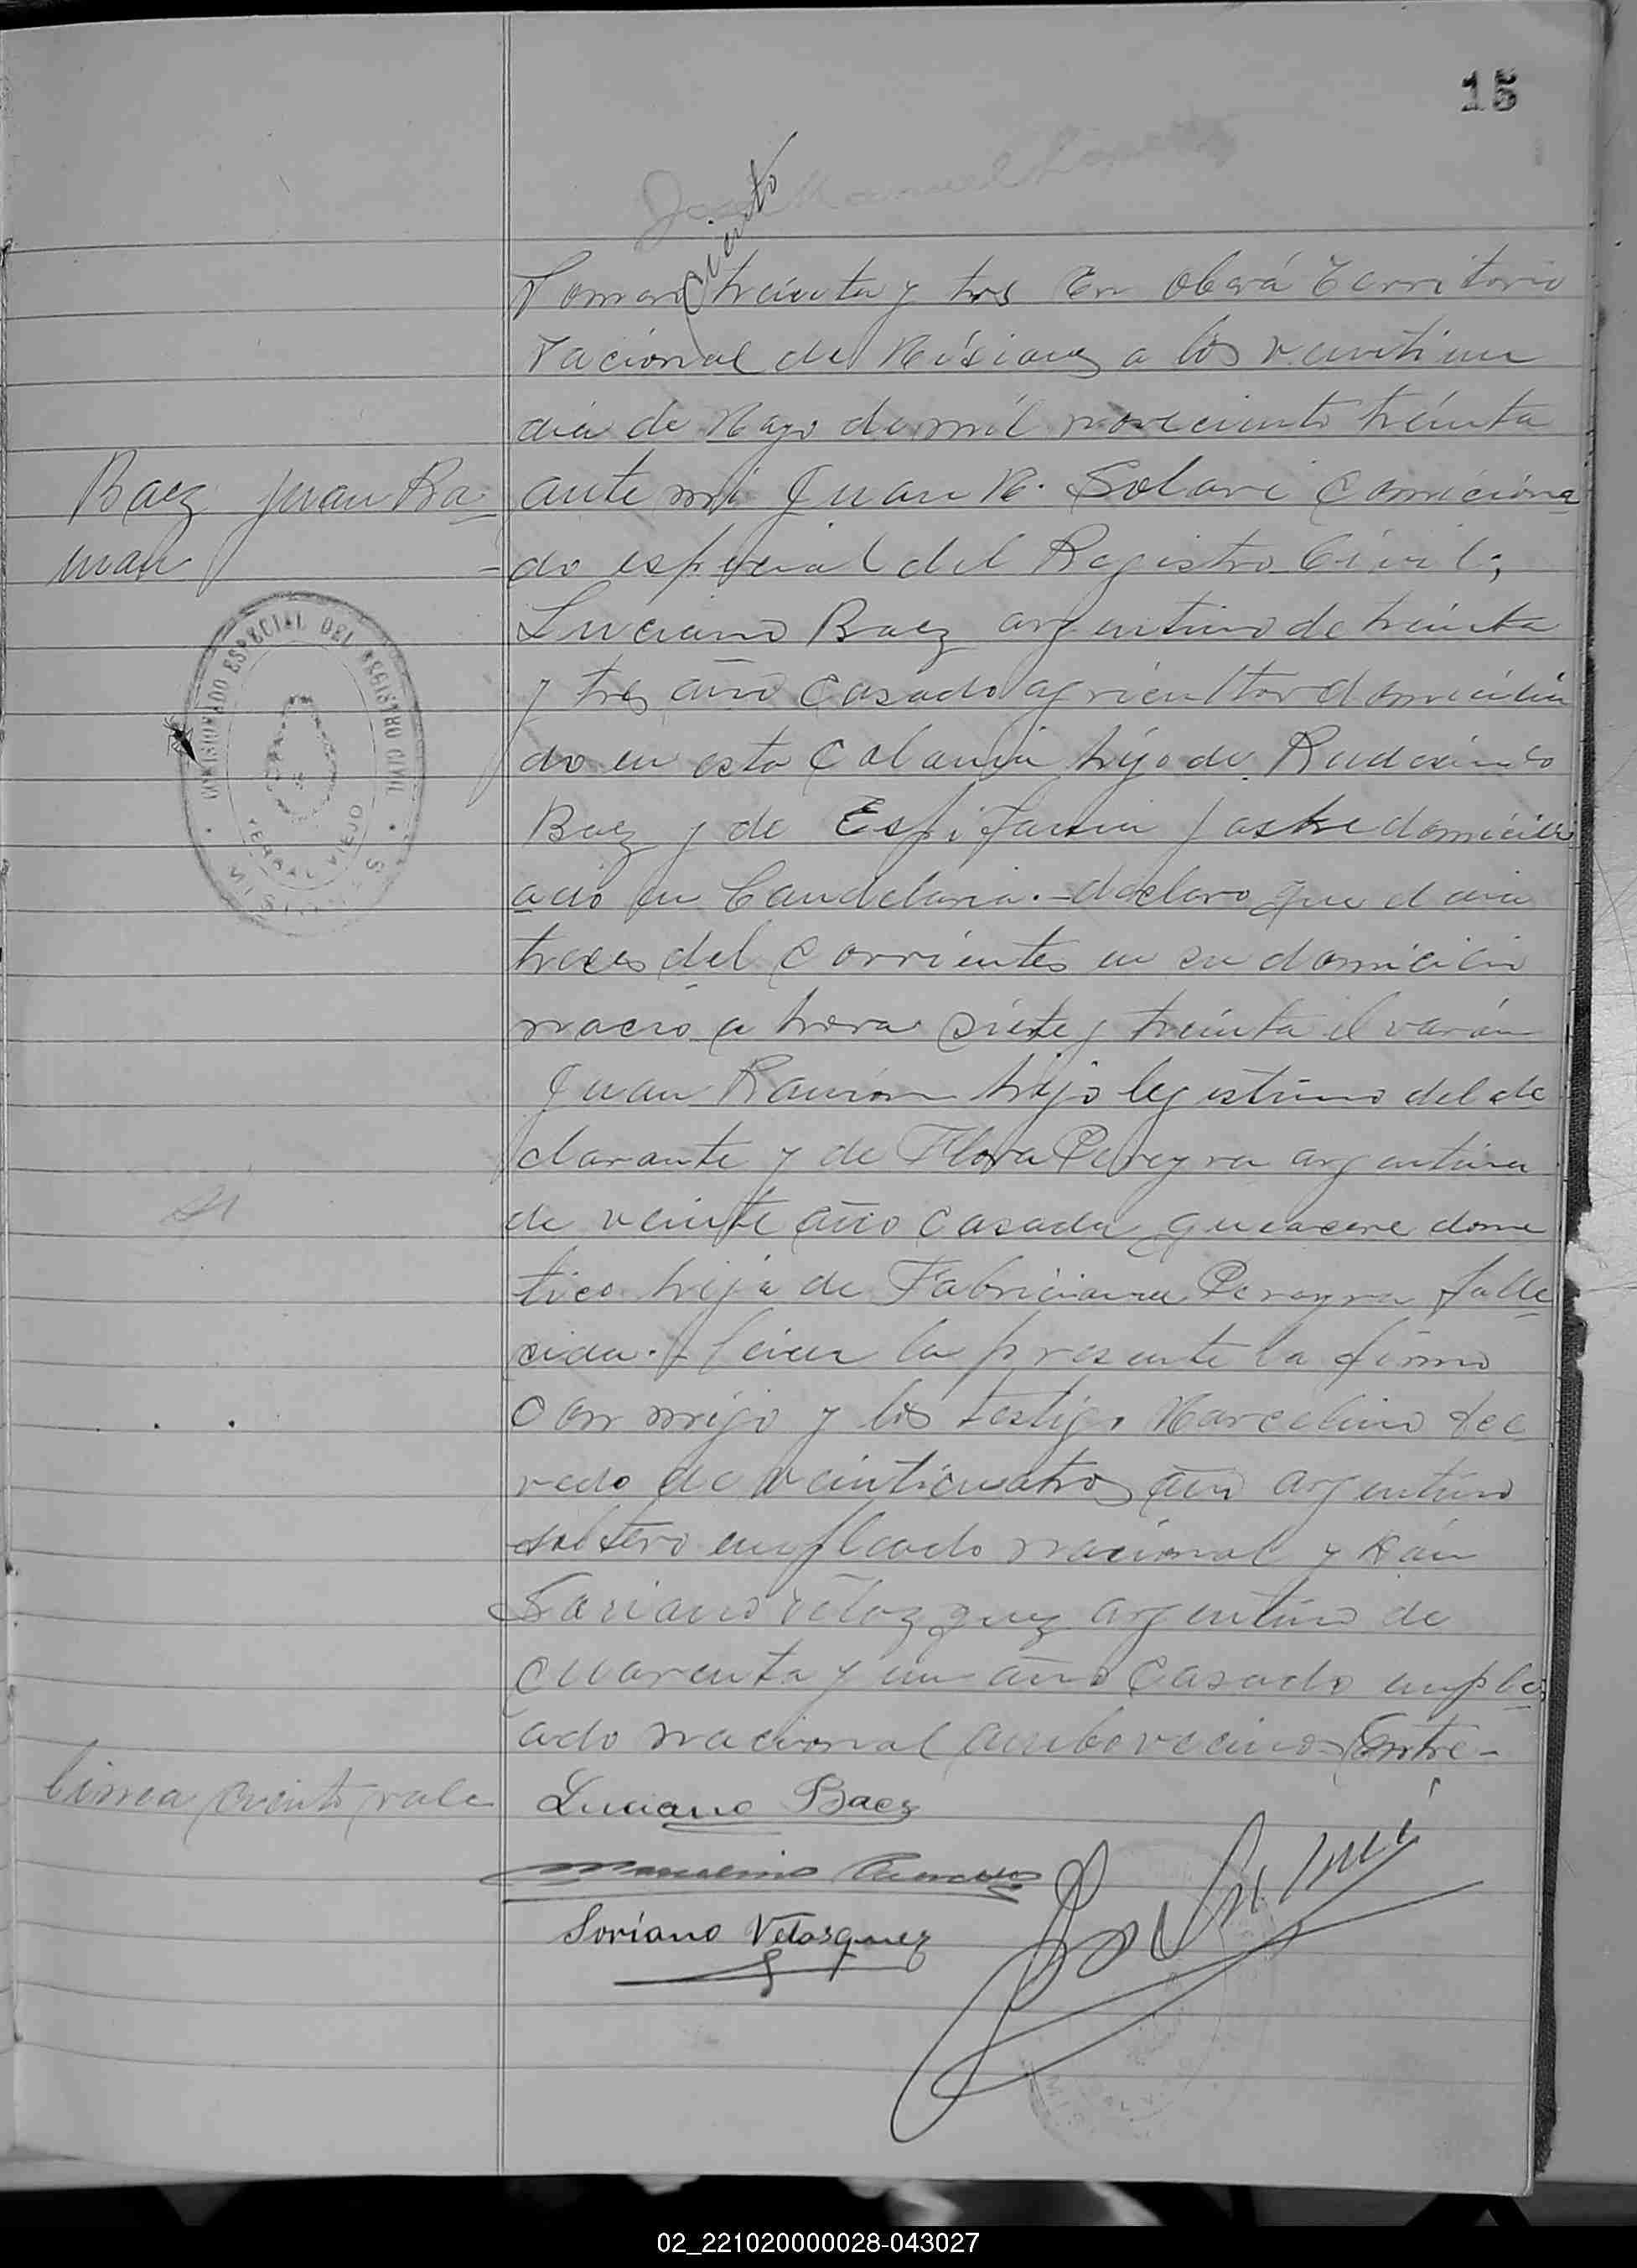 15
ciento
Nomero treinta y tres En Oberá Territorio
Nacional de Misiones a los veintiun
dia de Mayo de mil noveciento treinta
Baez Juan Ra-
man
ante mi Juan M. Solari Comiciona
do especial del Registro Civil;
COMISIONADO ESPECIAL DEL REGISTRO CIVIL
YERBAL VIEJO
MISIONES
Luciano Baez argentino de treinta
y tres año casado agricultor domicilia
do en esta Colonia hijo de Rudecindo
Baez y de Espifania domicili
ado en Candelaria.- declaro que el dia
treces del Corrientes en su domicilio
nacio a hora siete y treinta el varón
Juan Ramón hijo legistimo del de
clarante y de Flora Pereyra argentina
de veinte año casada queacere dome
tico hija de Fabriciana Pereyra falle
cida. Leida la presente la firmo
Con migo y los testigo Marcelino
de veinticuatro año argentino
soltero empleado nacional y
Soriano Velazquez argentino de
cuarenta y un año Casado emple
ado nacional ambo vecino- Entre-
linea ciento vale
Luciano Baez
Marcelino
Soriano Velasquez
02_221020000028-043027